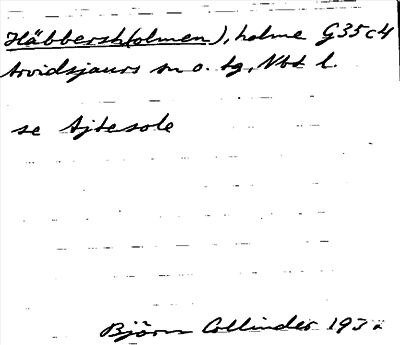 Häbbersh(olmen), holme G35c4
Arvidsjaurs sn o. tg, Nbt l.
se Ajtesole
Björn Collinder 193